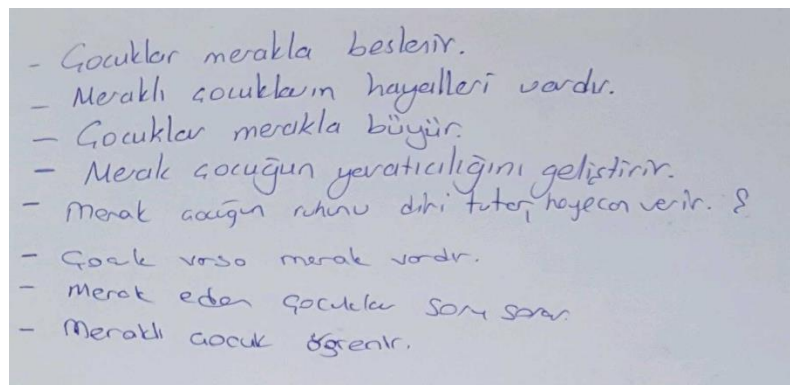 - Çocuklar merakla beslenir.
- Meraklı çocukların hayalleri vardır.
- Çocuklar merakla büyür.
- Merak çocuğun yaratıcılığını geliştirir.
- Merak çocuğun ruhunu diri tutar, heyecan verir. 8
- Çocuk varsa merak vardır.
- Merak eden çocuklar soru sorar.
- Meraklı çocuk öğrenir.